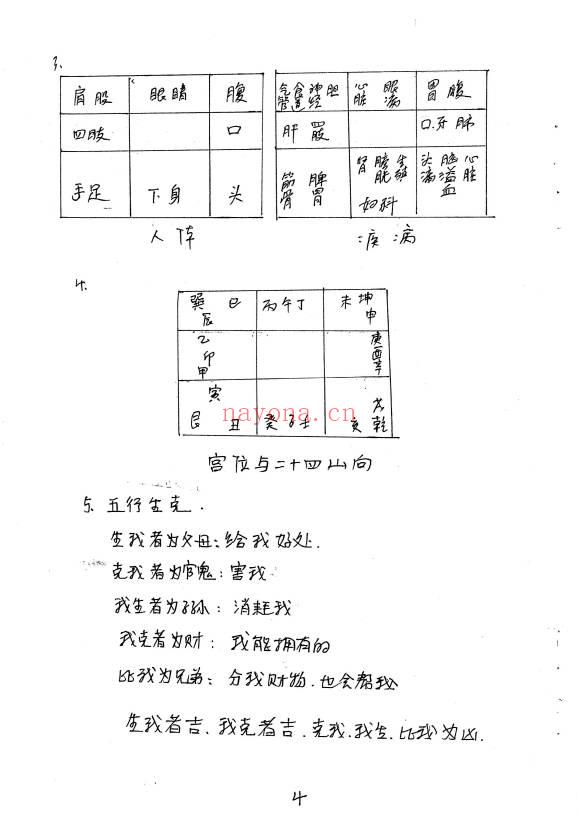 3.
肩股 眼睛 腹
四肢 口
手足 下身 头
人体
气管 食道 神经 胆 心脏 眼病 胃腹
肝 股 口.牙 肺
筋骨 脾胃 肾 膀胱 生殖 妇科 头痛 脑溢血 心脏
疾病
4.
巽 巳 辰 丙午丁 未坤申
乙卯甲 庚酉辛
寅 艮 丑 癸子壬 戌乾亥
nayona.cn
宫位与二十四山向
5. 五行生克.
生我者为父母:给我好处.
克我者为官鬼:害我
我生者为子孙:消耗我
我克者为财:我能拥有的
比我为兄弟:分我财物.也会帮我
生我者吉、我克者吉、克我.我生.比我为凶.
4